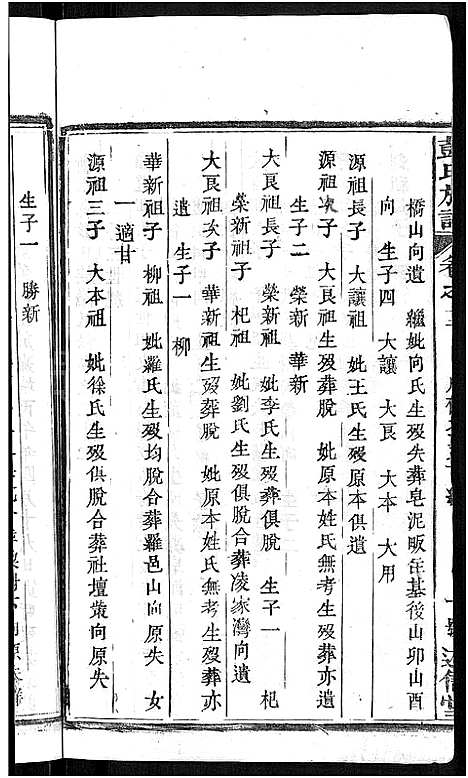 彭氏族譜
橋山向遺　繼妣向氏生歿失葬皂泥畈住基後山卯山酉
向　生子四　大讓　大良　大本　大用
源祖長子　大讓祖　妣王氏生歿原本俱遺
源祖次子　大良祖生歿葬脫　妣原本姓氏無考生歿亦遺
生子二　榮新　華新
大良祖長子　榮新祖　妣李氏生歿葬俱脫　生子一　杞
榮新祖子　杞祖　妣劉氏生歿俱脫合葬凌家灣向遺
大良祖次子　華新祖生歿葬脫　妣原本姓氏無考生歿亦
遺　生子一　柳
華新祖子　柳祖　妣羅氏生歿均脫合葬羅邑山向原失　女
一　適甘
源祖三子　大本祖　妣徐氏生歿俱脫合葬社壇叢向原失
生子一　勝新